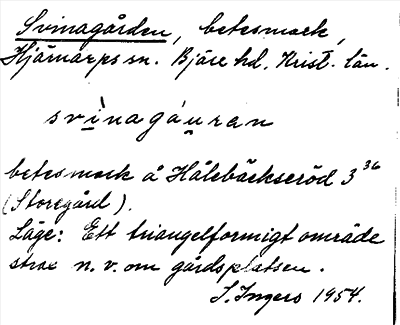 Svinagården, betesmark,
Hjärnarps sn. Bjäre hd. Krist. län.
svìnagáu̯ran
betesmark å Hålebäckseröd 3 36
(Storegård).
Läge: Ett triangelformigt område
strax n.v. om gårdsplatsen.
S. Ingers 1954.